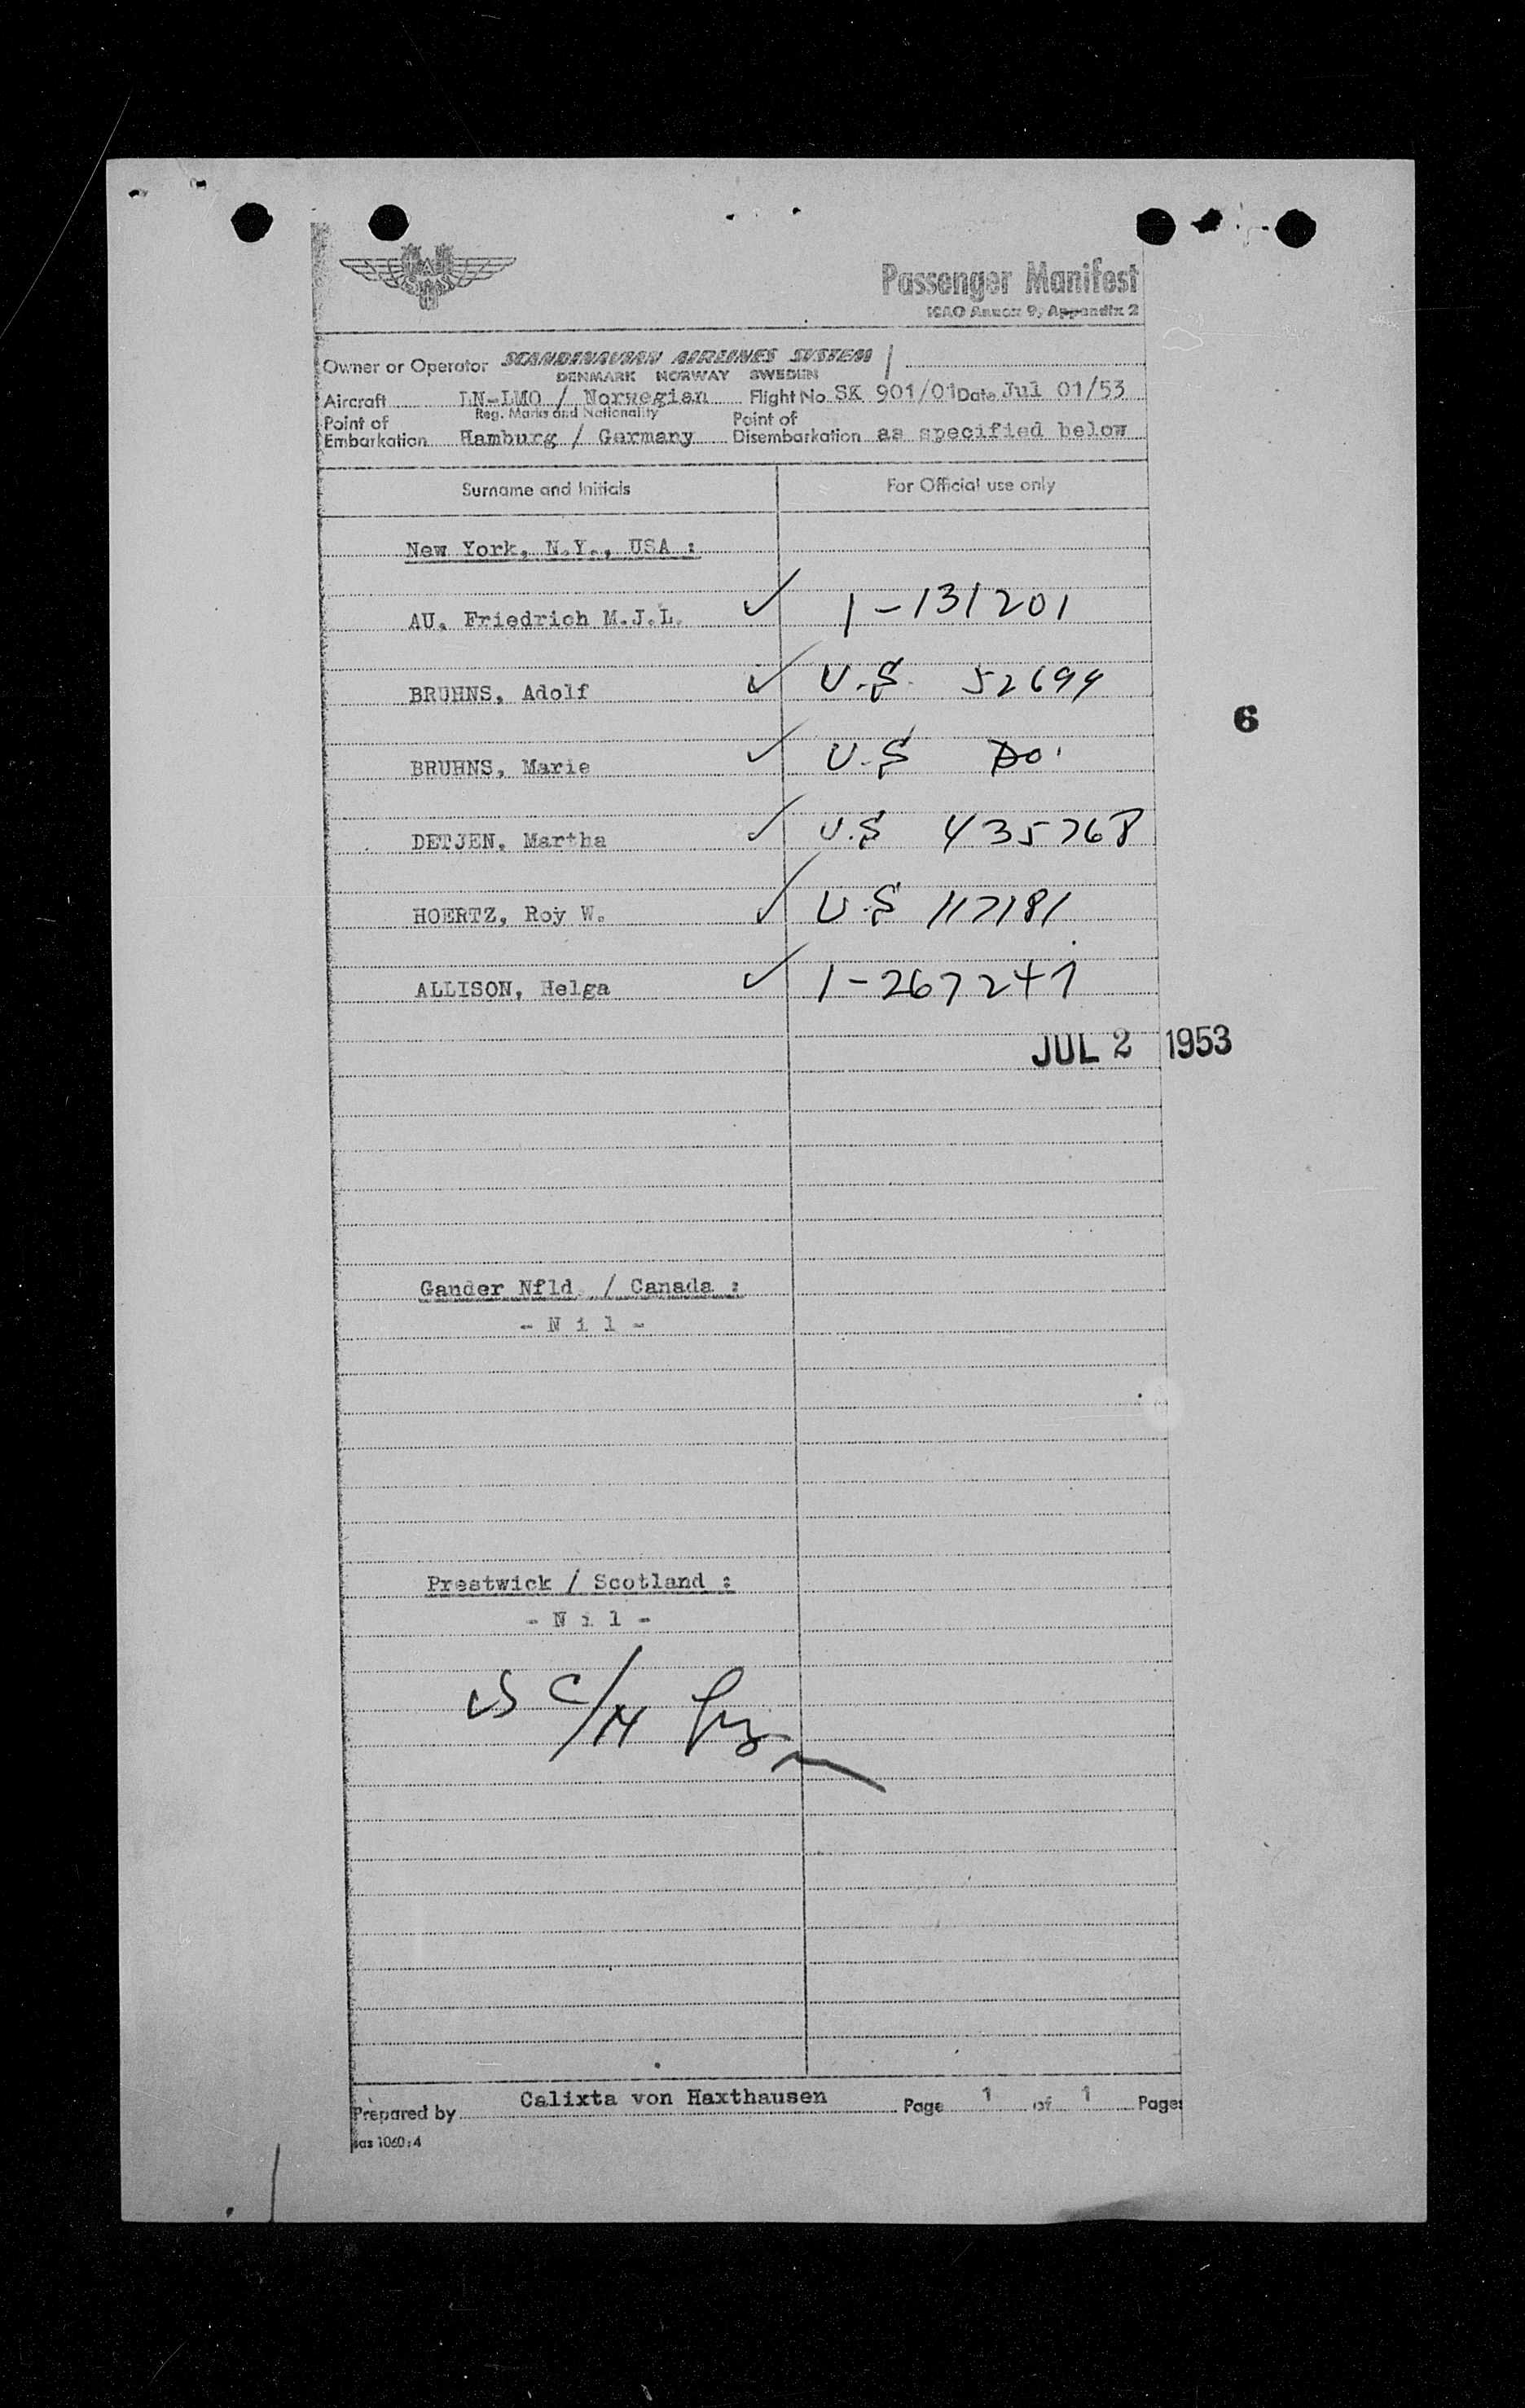 Passenger Manifest
ICAO Annex 9, Appendix 2
Owner or Operator SCANDINAVIAN AIRLINES SYSTEM
DENMARK NORWAY SWEDEN
Aircraft LN-LMO / Norwegian Flight No. SK 901/01 Date Jul 01/53
Reg. Marks and Nationality
Point of Embarkation Hamburg / Germany Point of Disembarkation as specified below
Surname and Initials For Official use only
New York, N.Y., USA :
AU, Friedrich M.J.L. ✓ 1-131201
BRUHNS, Adolf ✓ U.S. 52699
BRUHNS, Marie ✓ U.S Do.
6
DETJEN, Martha ✓ U.S 435768
HOERTZ, Roy W. ✓ U.S 117181
ALLISON, Helga ✓ 1-267247
JUL 2 1953
Gander Nfld. / Canada :
- N i l -
Prestwick / Scotland :
- N i l -
Prepared by Calixta von Haxthausen Page 1 of 1 Pages
sas 1060:4